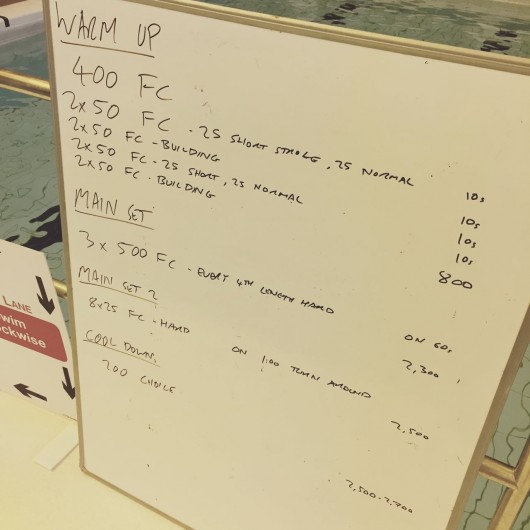 WARM UP
400 FC
2x50 FC - 25 SHORT STROKE, 25 NORMAL 10s
2x50 FC - BUILDING 10s
2x50 FC - 25 SHORT, 25 NORMAL 10s
2x50 FC - BUILDING 10s
800
MAIN SET
3 x 500 FC - EVERY 4TH LENGTH HARD ON 60s
2,300
MAIN SET 2
8x25 FC - HARD ON 1:00 TURN AROUND
2,500
COOL DOWN
200 CHOICE
2,500-2,700
LANE
wim
ockwise